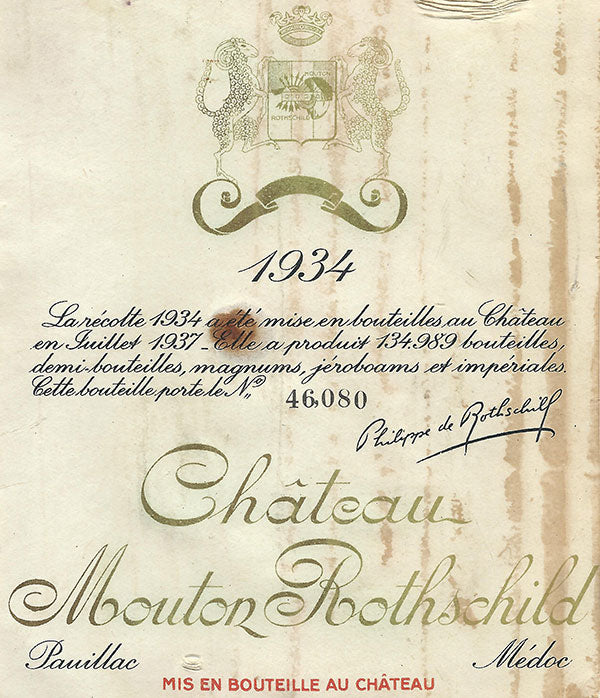 MOUTON
ROTHSCHILD
1934
La récolte 1934 a été mise en bouteilles au Château
en Juillet 1937 _ Elle a produit 134.989 bouteilles,
demi-bouteilles, magnums, jéroboams et impériales.
Cette bouteille porte le No 46,080
Philippe de Rothschild
Château
Mouton Rothschild
Pauillac Médoc
MIS EN BOUTEILLE AU CHÂTEAU